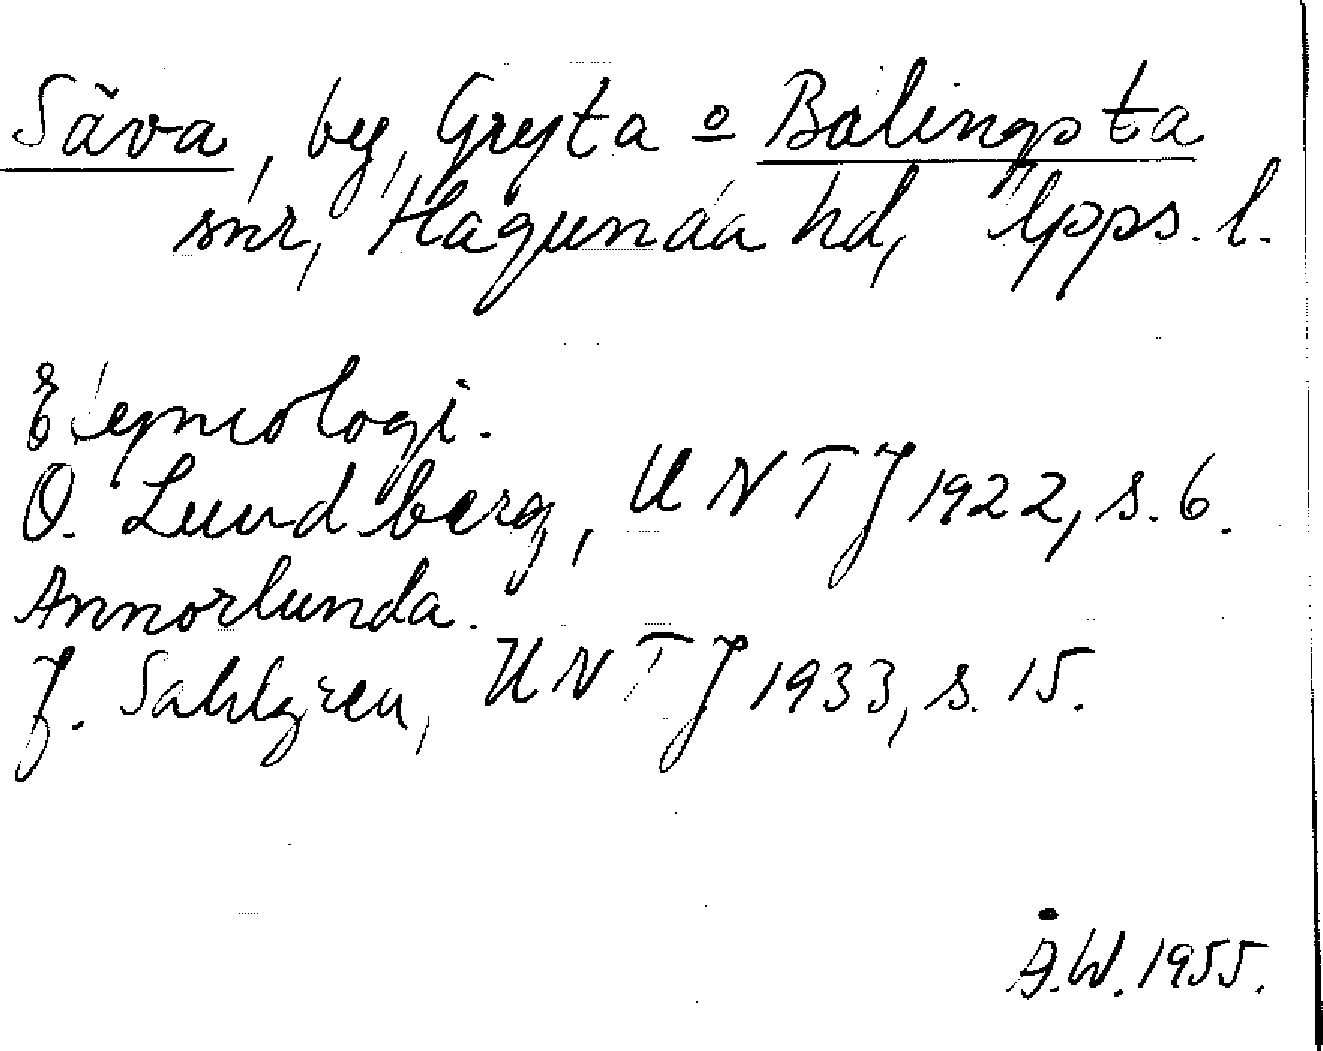 Säva, by, Gryta o Balingsta
snr, Hagunda hd, Upps. l.
Etymologi.
O. Lundberg, UNTJ 1922, s. 6.
Annorlunda.
J. Sahlgren, UNTJ 1933, s. 15.
Å.W. 1955.